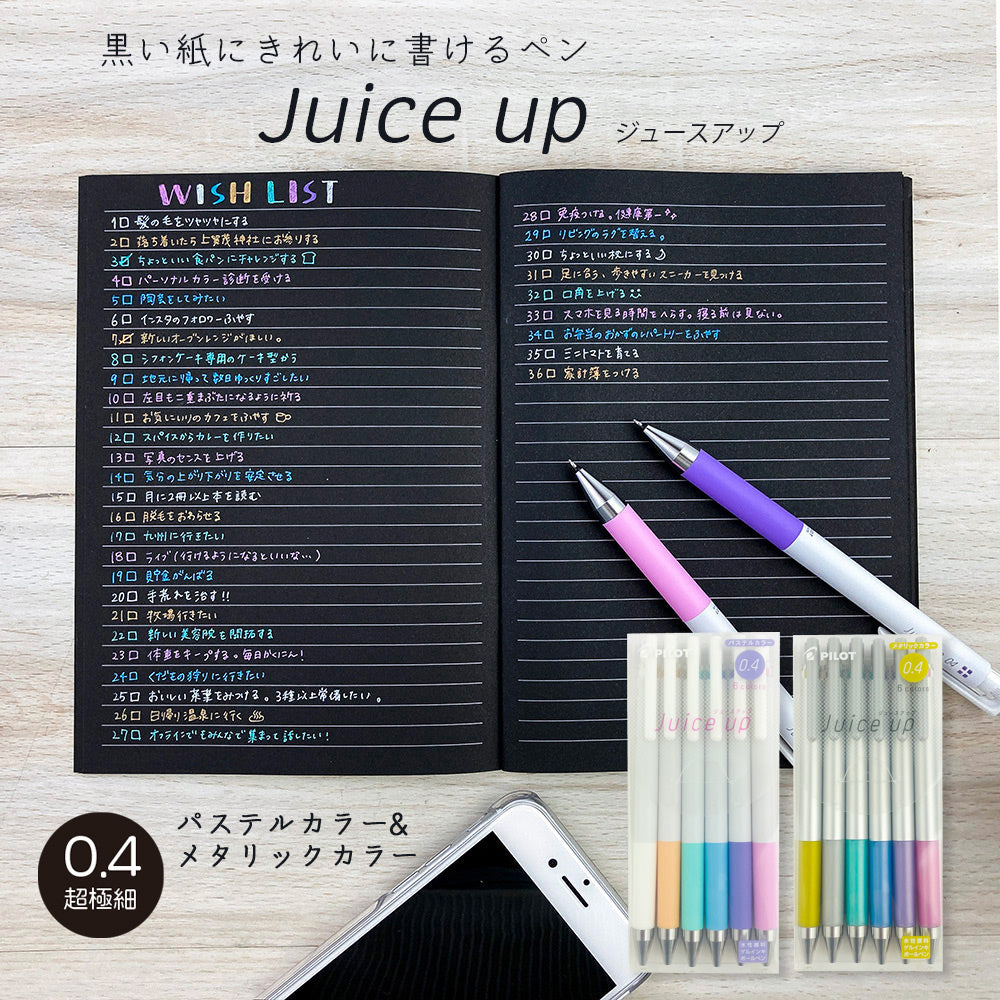 黒い紙にきれいに書けるペン
Juice up ジュースアップ
WISH LIST
1□ 髪の毛をツヤツヤにする
2□ 落ち着いたら上賀茂神社にお参りする
3☑ ちょっといい食パンにチャレンジする
4□ パーソナルカラー診断を受ける
5□ 陶芸をしてみたい
6□ インスタのフォロワーふやす
7☑ 新しいオーブンレンジがほしい。
8□ シフォンケーキ専用のケーキ型かう
9□ 地元に帰って数日ゆっくりすごしたい
10□ 左目も二重まぶたになるように祈る
11□ お気にいりのカフェをふやす
12□ スパイスからカレーを作りたい
13□ 写真のセンスを上げる
14□ 気分の上がり下がりを安定させる
15□ 月に2冊以上本を読む
16□ 脱毛をおわらせる
17□ 九州に行きたい
18□ ライブ(行けるようになるといいな…)
19□ 貯金がんばる
20□ 手荒れを治す!!
21□ 牧場行きたい
22□ 新しい美容院を開拓する
23□ 体重をキープする。毎日かくにん!
24□ くだもの狩りに行きたい
25□ おいしい茶葉をみつける。3種以上常備したい。
26□ 日帰り温泉に行く♨
27□ オフラインでもみんなで集まって話したい!
28□ 免疫つける。健康第一
29□ リビングのラグを替える。
30□ ちょっといい枕にする
31□ 足に合う、歩きやすいスニーカーを見つける
32□ 口角を上げる
33□ スマホを見る時間をへらす。寝る前は見ない。
34□ お弁当のおかずのレパートリーをふやす
35□ ミニトマトを育てる
36□ 家計簿をつける
0.4
超極細
パステルカラー&
メタリックカラー
パステルカラー
0.4
6 colors
Juice up
水性顔料
ゲルインキ
ボールペン
PILOT
メタリックカラー
0.4
6 colors
Juice up
水性顔料
ゲルインキ
ボールペン